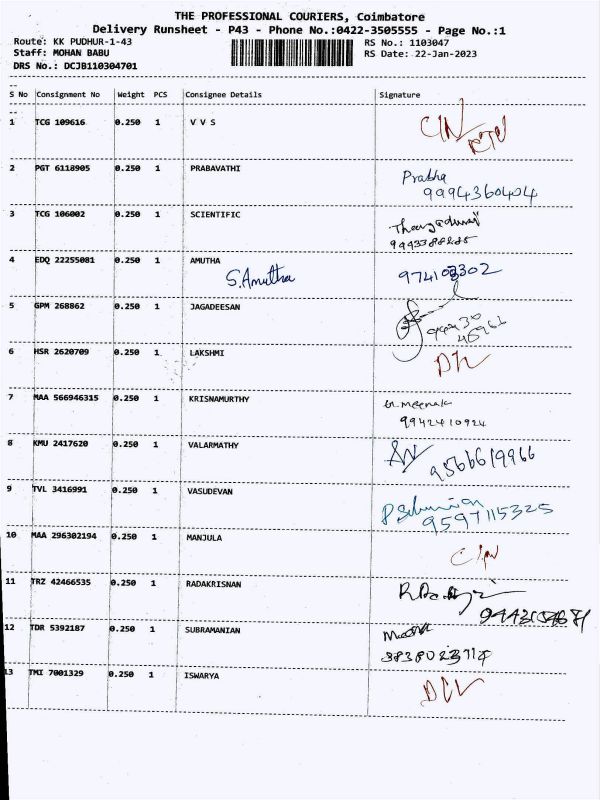 THE PROFESSIONAL COURIERS, Coimbatore
Delivery Runsheet - P43 - Phone No.:0422-3505555 - Page No.:1
Route: KK PUDHUR-1-43 RS No.: 1103047
Staff: MOHAN BABU RS Date: 22-Jan-2023
DRS No.: DCJB110304701
S No Consignment No Weight PCS Consignee Details Signature
1 TCG 109616 0.250 1 V V S
2 PGT 6118905 0.250 1 PRABAVATHI Prabha
9994360404
3 TCG 106002 0.250 1 SCIENTIFIC
4 EDQ 22255081 0.250 1 AMUTHA
S.Amutha
5 GPM 268862 0.250 1 JAGADEESAN
6 HSR 2620709 0.250 1 LAKSHMI
7 MAA 566946315 0.250 1 KRISNAMURTHY
9942410924
8 KMU 2417620 0.250 1 VALARMATHY
9566619966
9 TVL 3416991 0.250 1 VASUDEVAN
9597115325
10 MAA 296302194 0.250 1 MANJULA
11 TRZ 42466535 0.250 1 RADAKRISNAN
12 TDR 5392187 0.250 1 SUBRAMANIAN
13 TMI 7001329 0.250 1 ISWARYA